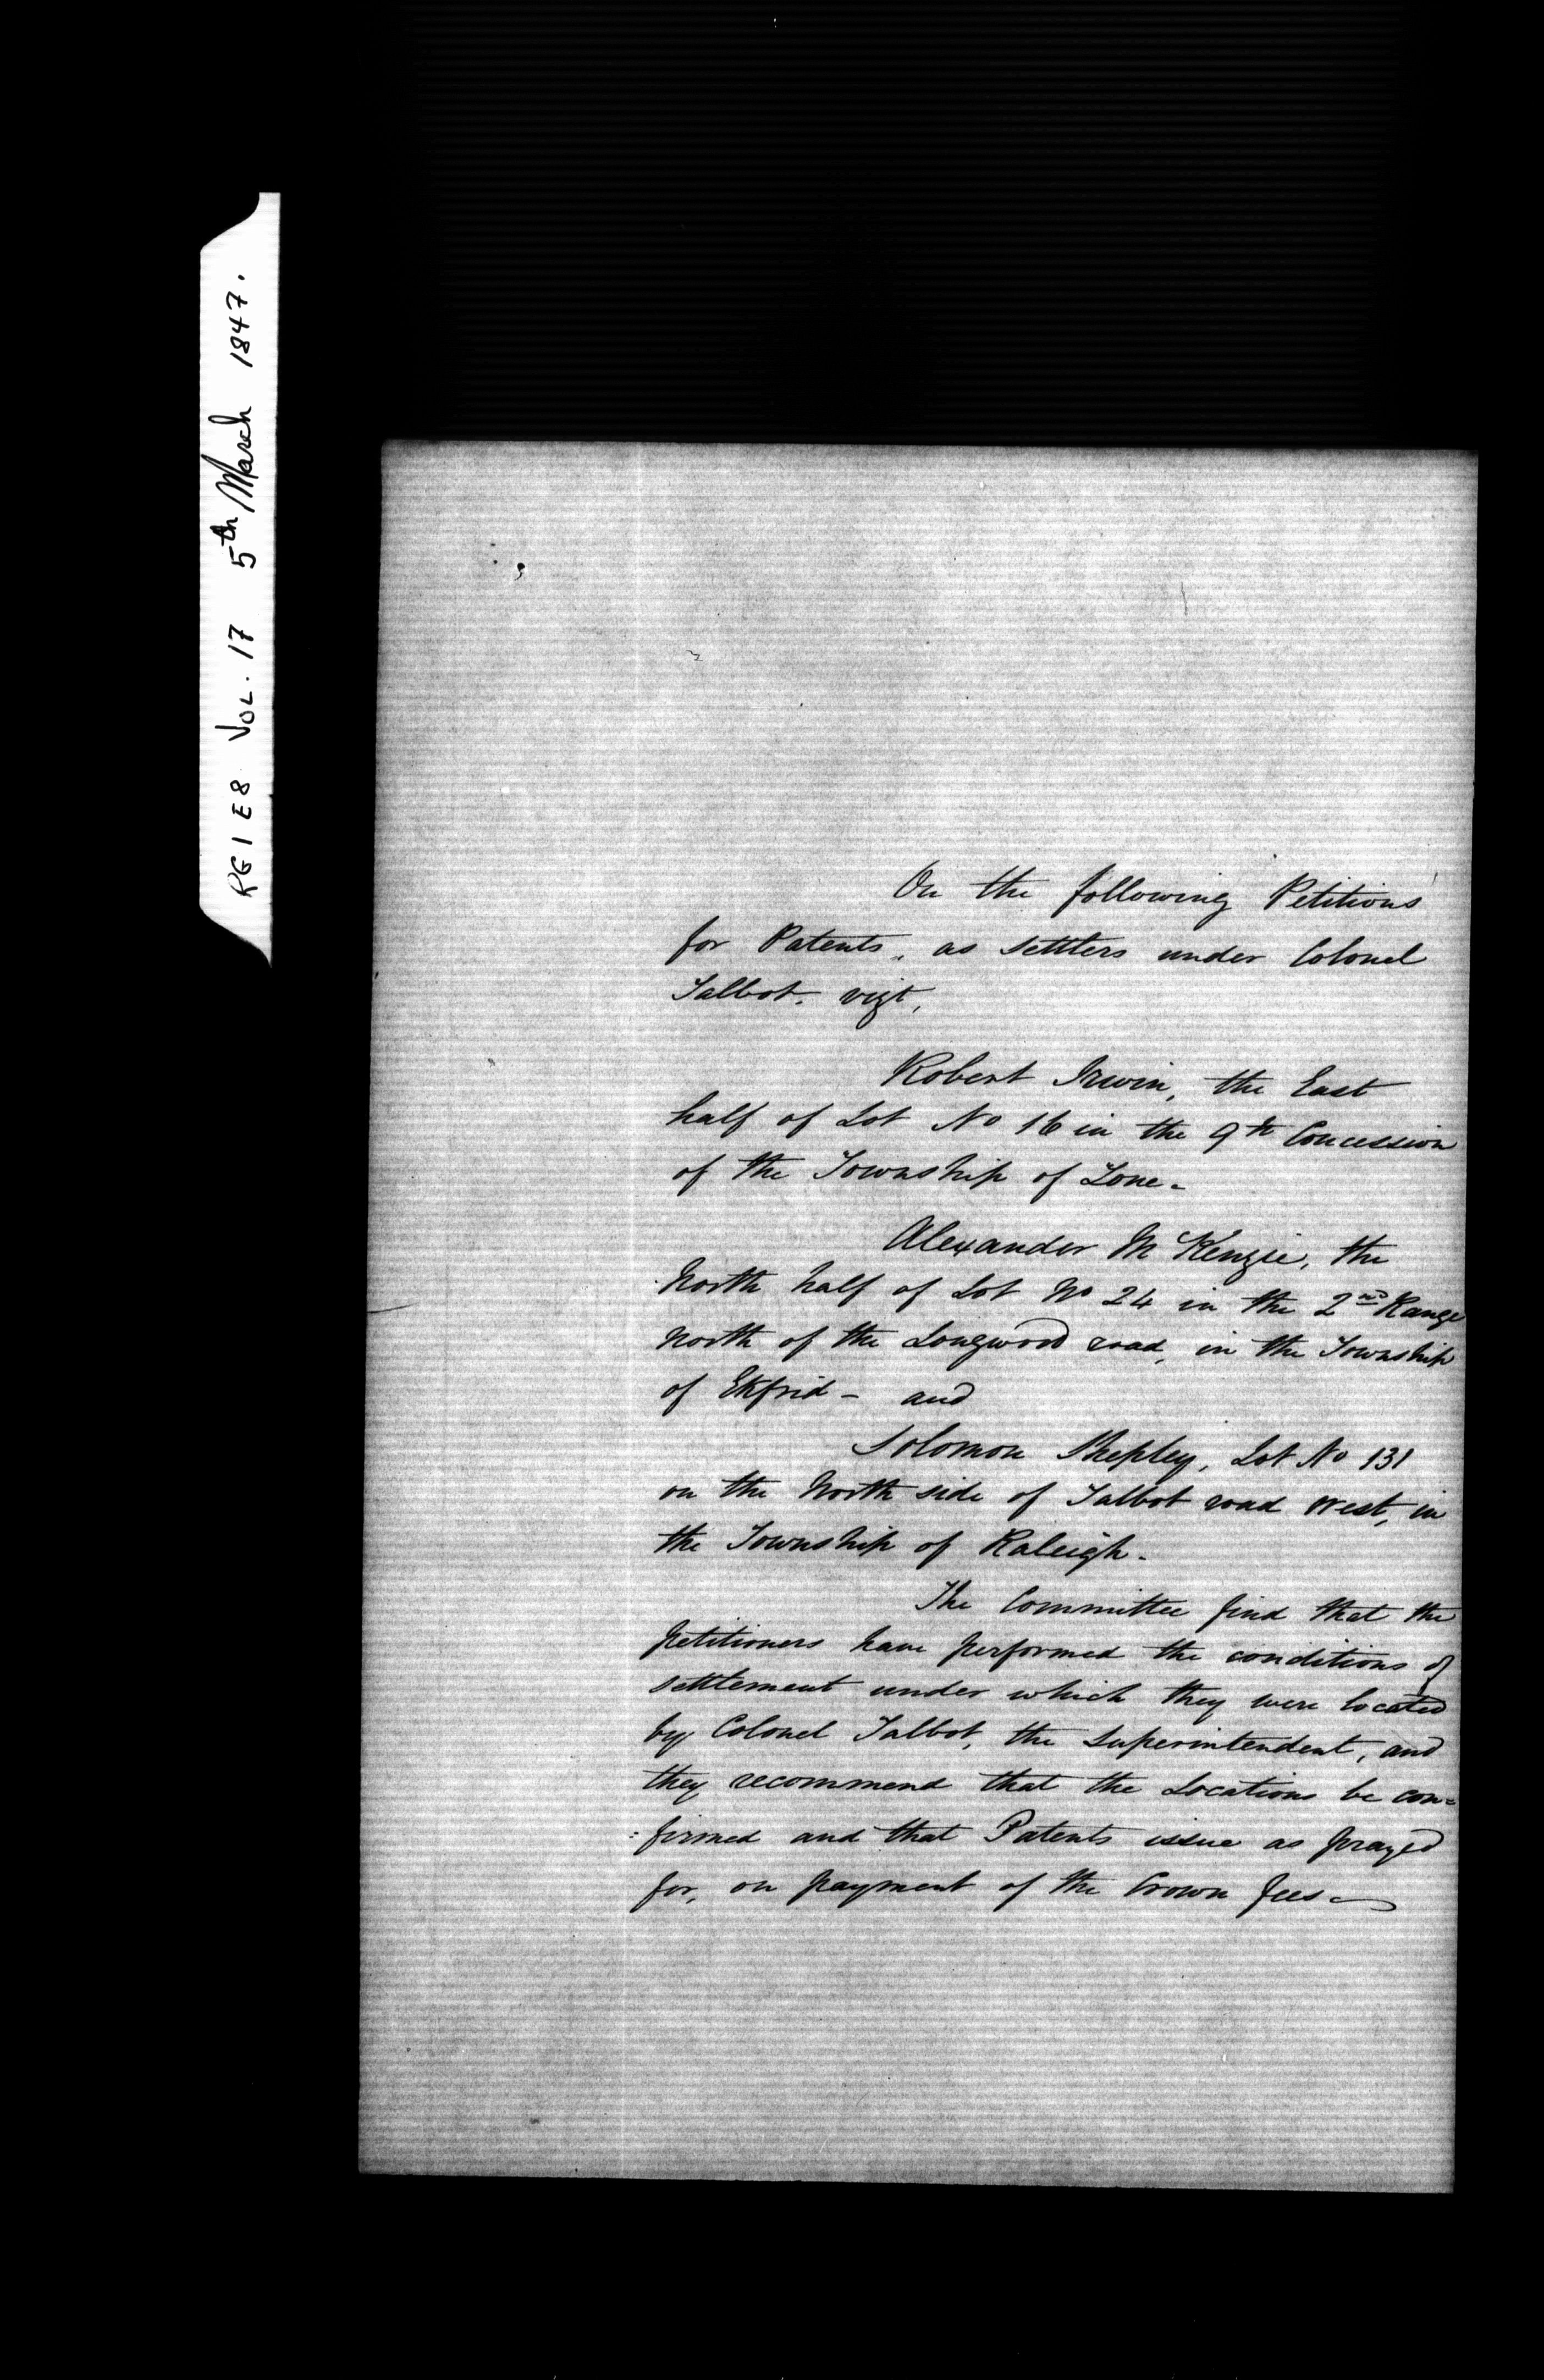 RG1 E8 VOL. 17 5th March 1847.
On the following Petitions
for Patents, as settlers under Colonel
Talbot. vizt,
Robert Irwin, the East
half of Lot No 16 in the 9th Concession
of the Township of Zone.
Alexander McKenzie, the
North half of Lot No 24 in the 2nd Range
North of the Longwood road, in the Township
of Ekfrid - and
Solomon Shepley, Lot No 131
on the North side of Talbot road West, in
the Township of Raleigh.
The Committee find that the
petitioners have performed the conditions of
settlement under which they were located
by Colonel Talbot, the Superintendent, and
they recommend that the Locations be con=
=firmed and that Patents issue as prayed
for, on payment of the Crown fees -